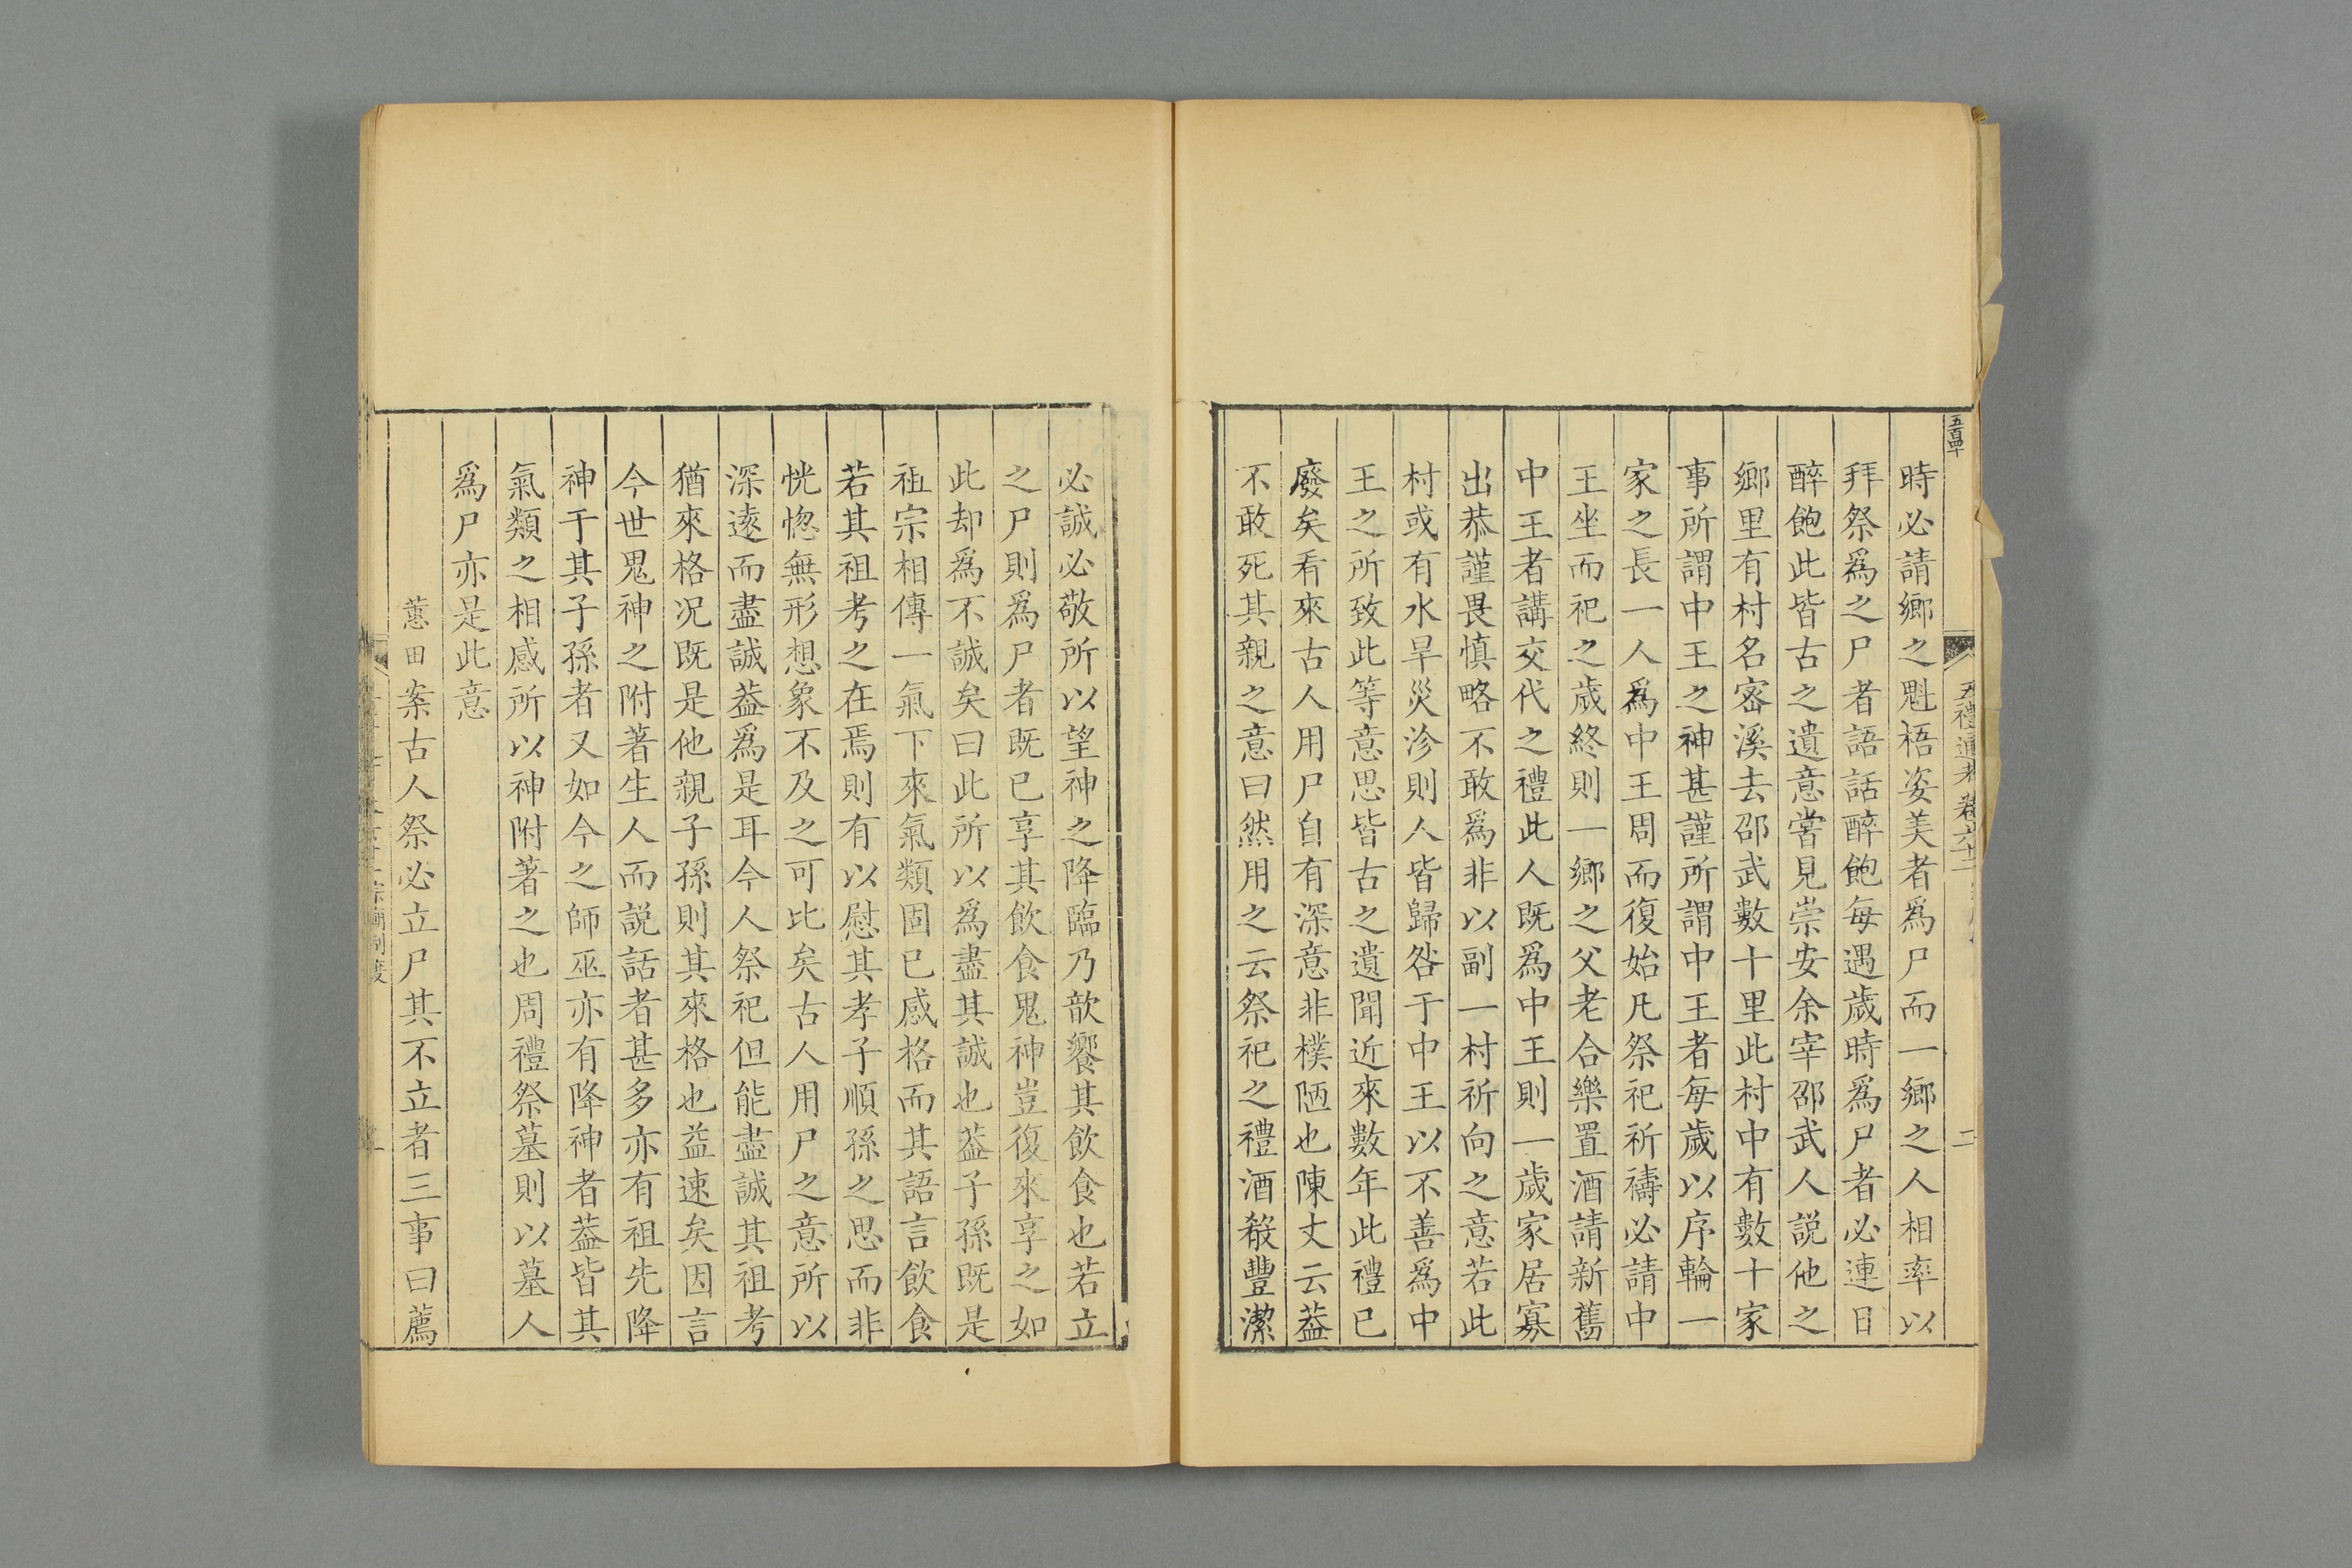 時必請鄉之魁梧姿美者爲尸而一鄉之人相率以
拜祭爲之尸者語話醉飽每遇歲時爲尸者必連日
醉飽此皆古之遺意嘗見崇安余宰邵武人説他之
鄉里有村名密溪去邵武數十里此村中有數十家
事所謂中王之神甚謹所謂中王者每歲以序輪一
家之長一人爲中王周而復始凡祭祀祈禱必請中
王坐而祀之歲終則一鄉之父老合樂置酒請新舊
中王者講交代之禮此人既爲中王則一歲家居寡
出恭謹畏慎略不敢爲非以副一村祈向之意若此
村或有水旱災沴則人皆歸咎于中王以不善爲中
王之所致此等意思皆古之遺聞近來數年此禮已
廢矣看來古人用尸自有深意非樸陋也陳丈云葢
不敢死其親之意曰然用之云祭祀之禮酒殽豐潔
必誠必敬所以望神之降臨乃歆饗其飲食也若立
之尸則爲尸者既已享其飲食鬼神豈復來享之如
此却爲不誠矣曰此所以爲盡其誠也葢子孫既是
祖宗相傳一氣下來氣類固已感格而其語言飲食
若其祖考之在焉則有以慰其孝子順孫之思而非
恍惚無形想象不及之可比矣古人用尸之意所以
深遠而盡誠葢爲是耳今人祭祀但能盡誠其祖考
猶來格况既是他親子孫則其來格也益速矣因言
今世鬼神之附著生人而説話者甚多亦有祖先降
神于其子孫者又如今之師巫亦有降神者葢皆其
氣類之相感所以神附著之也周禮祭墓則以墓人
爲尸亦是此意
蕙田案古人祭必立尸其不立者三事曰薦